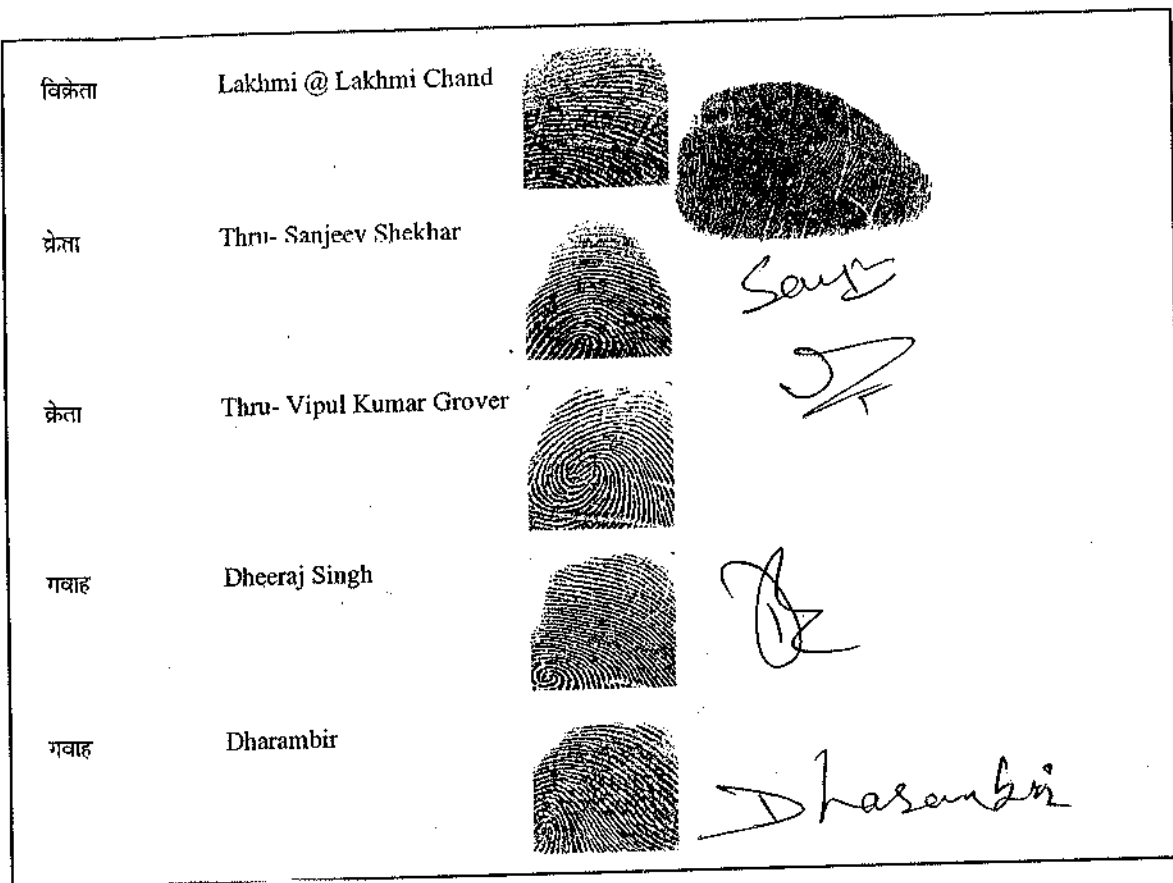 विक्रेता Lakhmi @ Lakhmi Chand
क्रेता Thru- Sanjeev Shekhar
क्रेता Thru- Vipul Kumar Grover
गवाह Dheeraj Singh
गवाह Dharambir
Dharambir